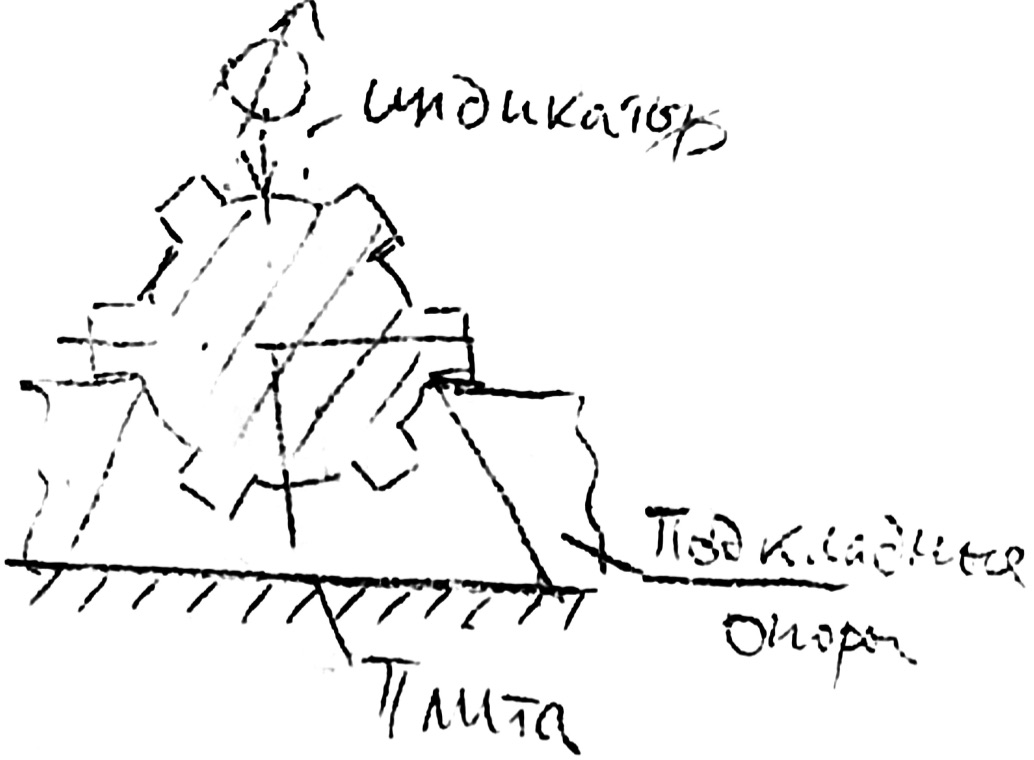 индикатор
Подкладные
опоры
Плита